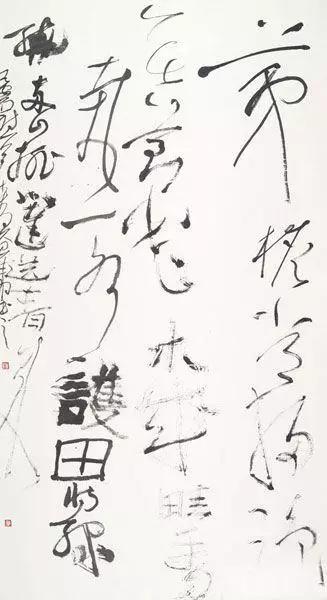 茅檐長掃淨
無苔花木成畦手自
栽一水護田將綠
繞兩山排闥送青來